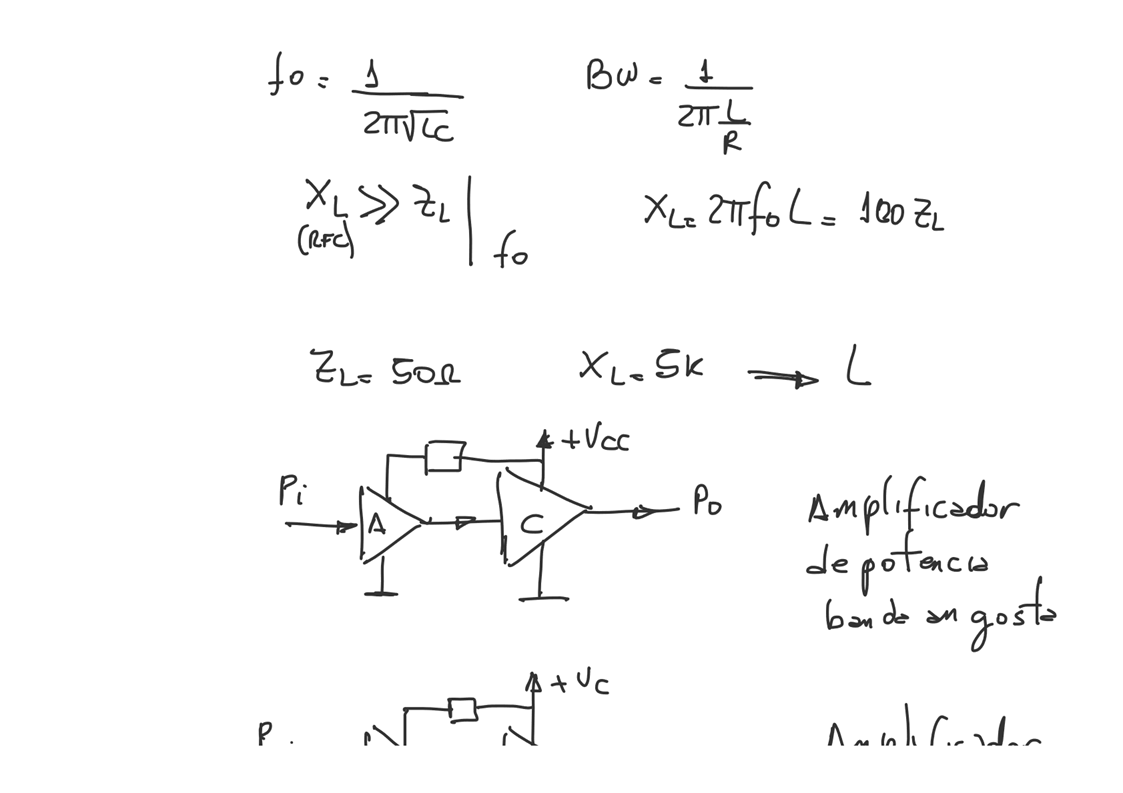 fo = 1 / 2π√LC    BW = 1 / 2π L/R
XL (RFC) >> ZL | fo    XL = 2πfoL = 100 ZL
ZL = 50Ω    XL = 5K ⟹ L
+Vcc
Pi    A    C    Po
Amplificador
de potencia
banda angosta
+Vc
P
Amplificador